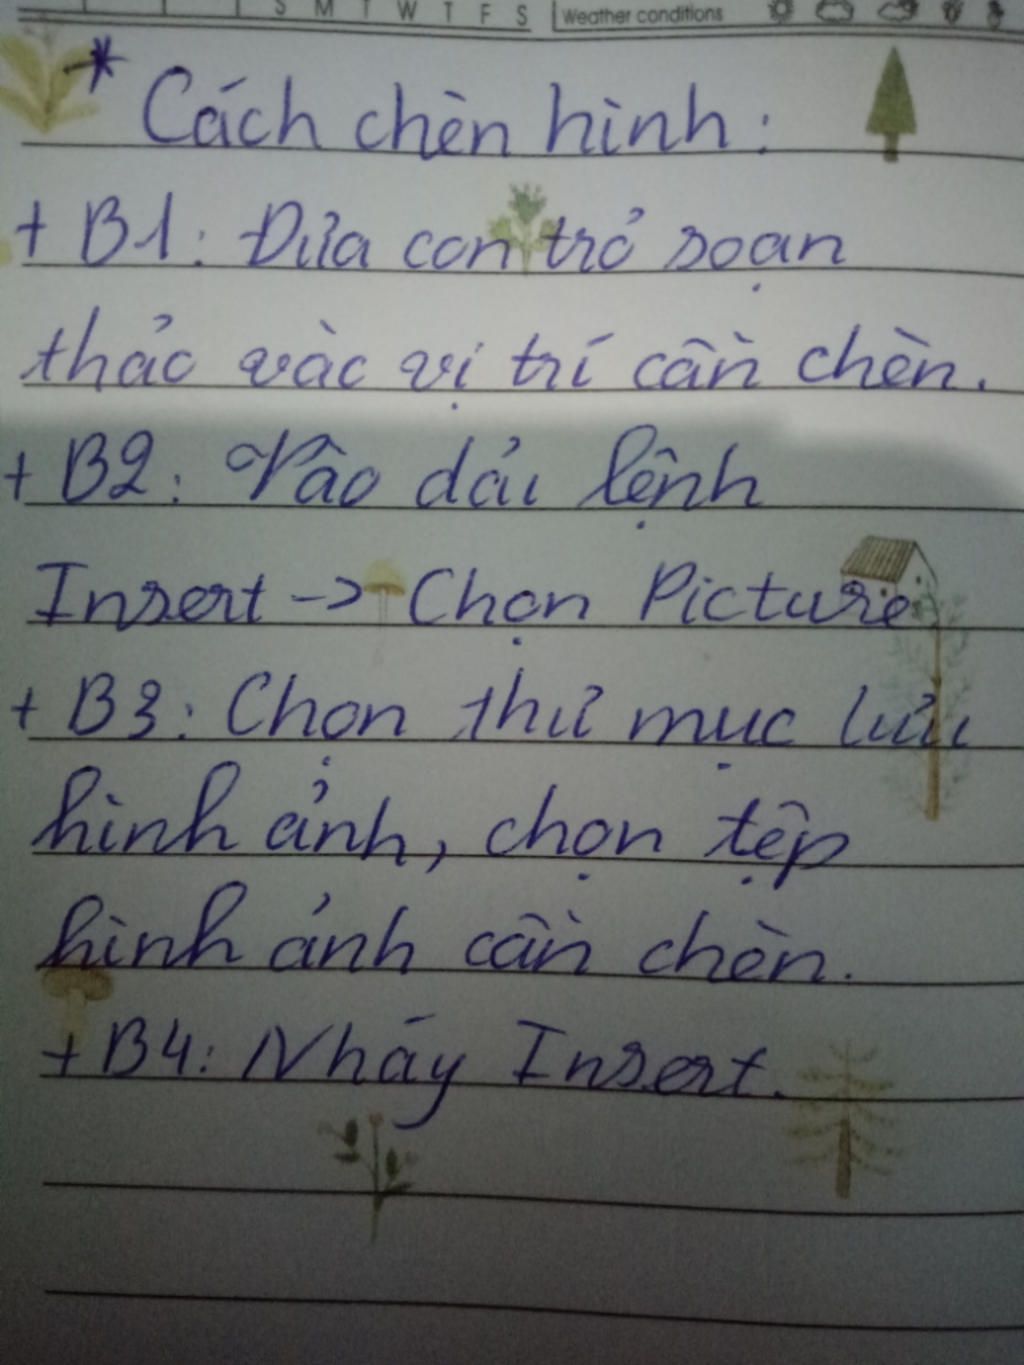 S M T W T F S Weather conditions
* Cách chèn hình:
+ B1: Đưa con trỏ soạn
thảo vào vị trí cần chèn.
+ B2: Vào dải lệnh
Insert -> Chọn Picture
+ B3: Chọn thư mục lưu
hình ảnh, chọn tệp
hình ảnh cần chèn.
+ B4: Nháy Insert.